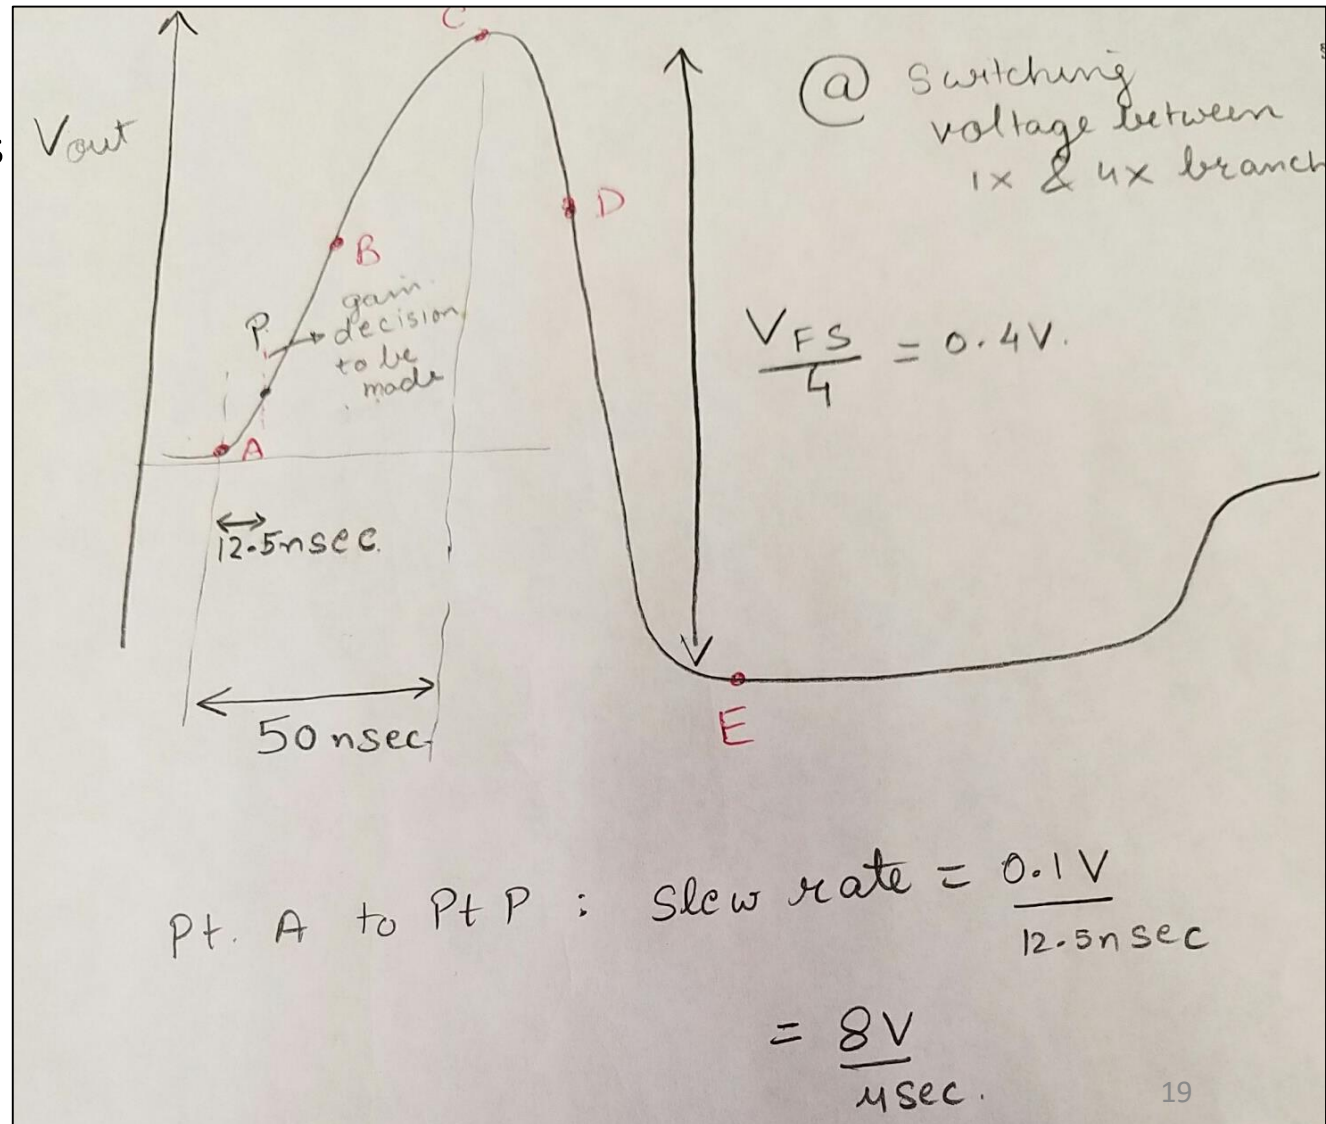 C
Vout
@ Switching
voltage between
1x & 4x branch
D
B
gain
P.
decision
to be
made
VFS/4 = 0.4V.
A
12.5nsec.
50 nsec
E
Pt. A to Pt P : Slew rate = 0.1V/12.5nsec
= 8V/μsec.
19